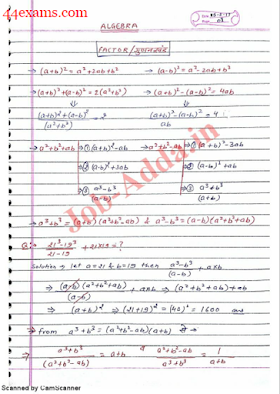 44exams.com
ALGEBRA
FACTOR / गुणनखंड
→ (a+b)² = a²+2ab+b² → (a-b)² = a²-2ab+b²
→ (a+b)²+(a-b)² = 2(a²+b²) → (a+b)²-(a-b)² = 4ab
⇓ ⇓
(a+b)²+(a-b)² / (a²+b²) = 2 (a+b)²-(a-b)² / ab = 4
→ a²+b²+ab → ① (a+b)²-ab → a²+b²-ab → ① (a+b)²-3ab
② (a-b)²+3ab ② (a-b)²+ab
③ a³-b³ / (a-b) ③ a³+b³ / (a+b)
Job-Adda.in
→ a³+b³ = (a+b)(a²+b²-ab) & a³-b³ = (a-b)(a²+b²+ab)
21³-19³ / 21-19 + 21×19 = ?
Solution → let a=21 & b=19 then a³-b³ / (a-b) + a×b
⇒ (a-b)(a²+b²+ab) / (a-b) + a×b ⇒ (a²+b²+ab)+ab
⇒ (a+b)² ⇒ (21+19)² = (40)² = 1600 ans
→ from a³+b³ = (a²+b²-ab)(a+b) से →
⇒ a³+b³ / (a²+b²-ab) = a+b a²+b²-ab / a³+b³ = 1 / a+b
Scanned by CamScanner